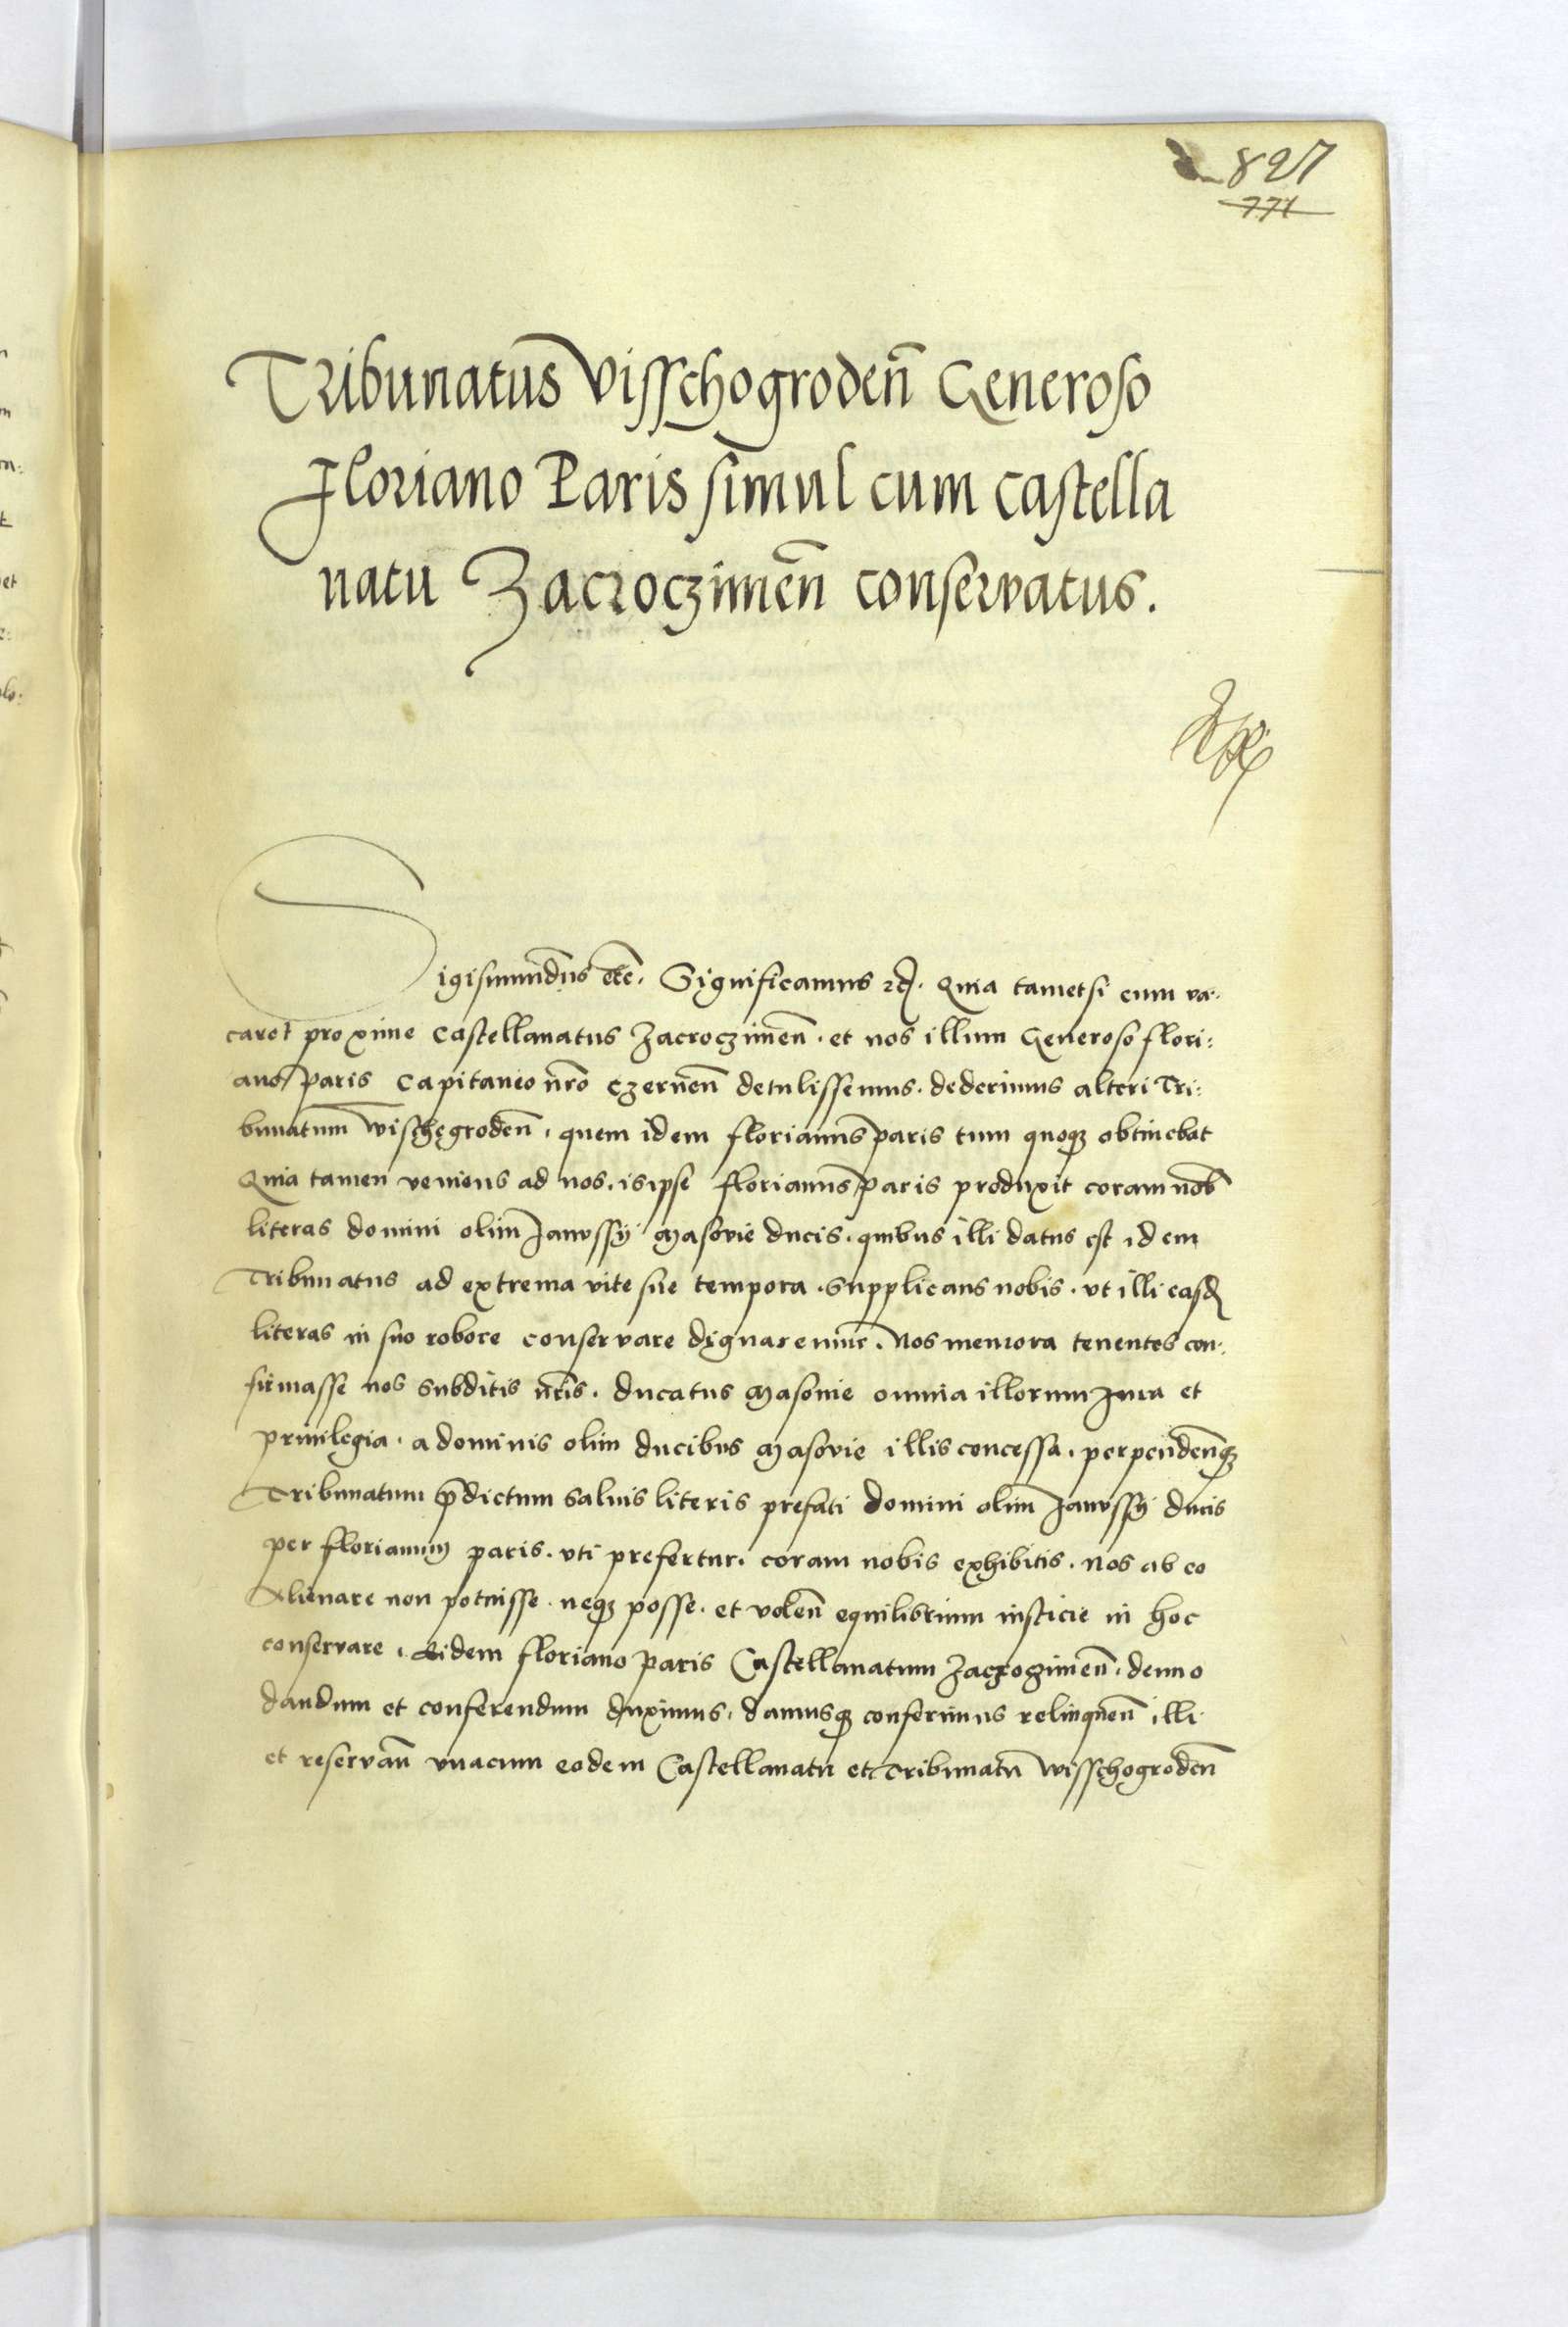 827
771
Tribunatus Visschogrodeñ Generoso
Floriano Paris simul cum castella
natu Zacroczimeñ conservatus.
Sigismundus etc̃. Significamus &c. Quia tametsi cum va-
caret proxime Castellanatus Zacroczimeñ. et nos illum Generoso Flori:
ano Paris Capitaneo nr̃o Czerneñ detulissemus. dederimus alteri Tri:
bunatum Wischegrodeñ, quem idem Florianus Paris tum quoqȝ obtinebat
Quia tamen veniens ad nos. is ipse Florianus Paris produxit coram nob̃
literas domini olim Janussÿ Masovie ducis. quibus illi datus est idem
Tribunatus ad extrema vite sue tempora. Supplicans nobis. ut illi easd
literas in suo robore conservare dignaremur. Nos memora tenentes con-
firmasse nos subditis nr̃is. ducatus Masovie omnia illorum Jura et
privilegia. a dominis olim ducibus Masovie illis concessa. perpendeñqȝ
Tribunatum p̃dictum salvis literis prefati domini olim Janussÿ ducis
per Florianum Paris. uti prefertur. coram nobis exhibitis. nos ab eo
alienare non potuisse. neqȝ posse. et voleñ equilibrium iusticie in hoc
conservare. Eidem Floriano Paris Castellanatum Zacroczimeñ. denuo
dandum et conferendum duximus. damusqȝ conferimus relinqueñ illi
et reservañ unacum eodem Castellanatu et Tribunatũ Wisschogrodeñ